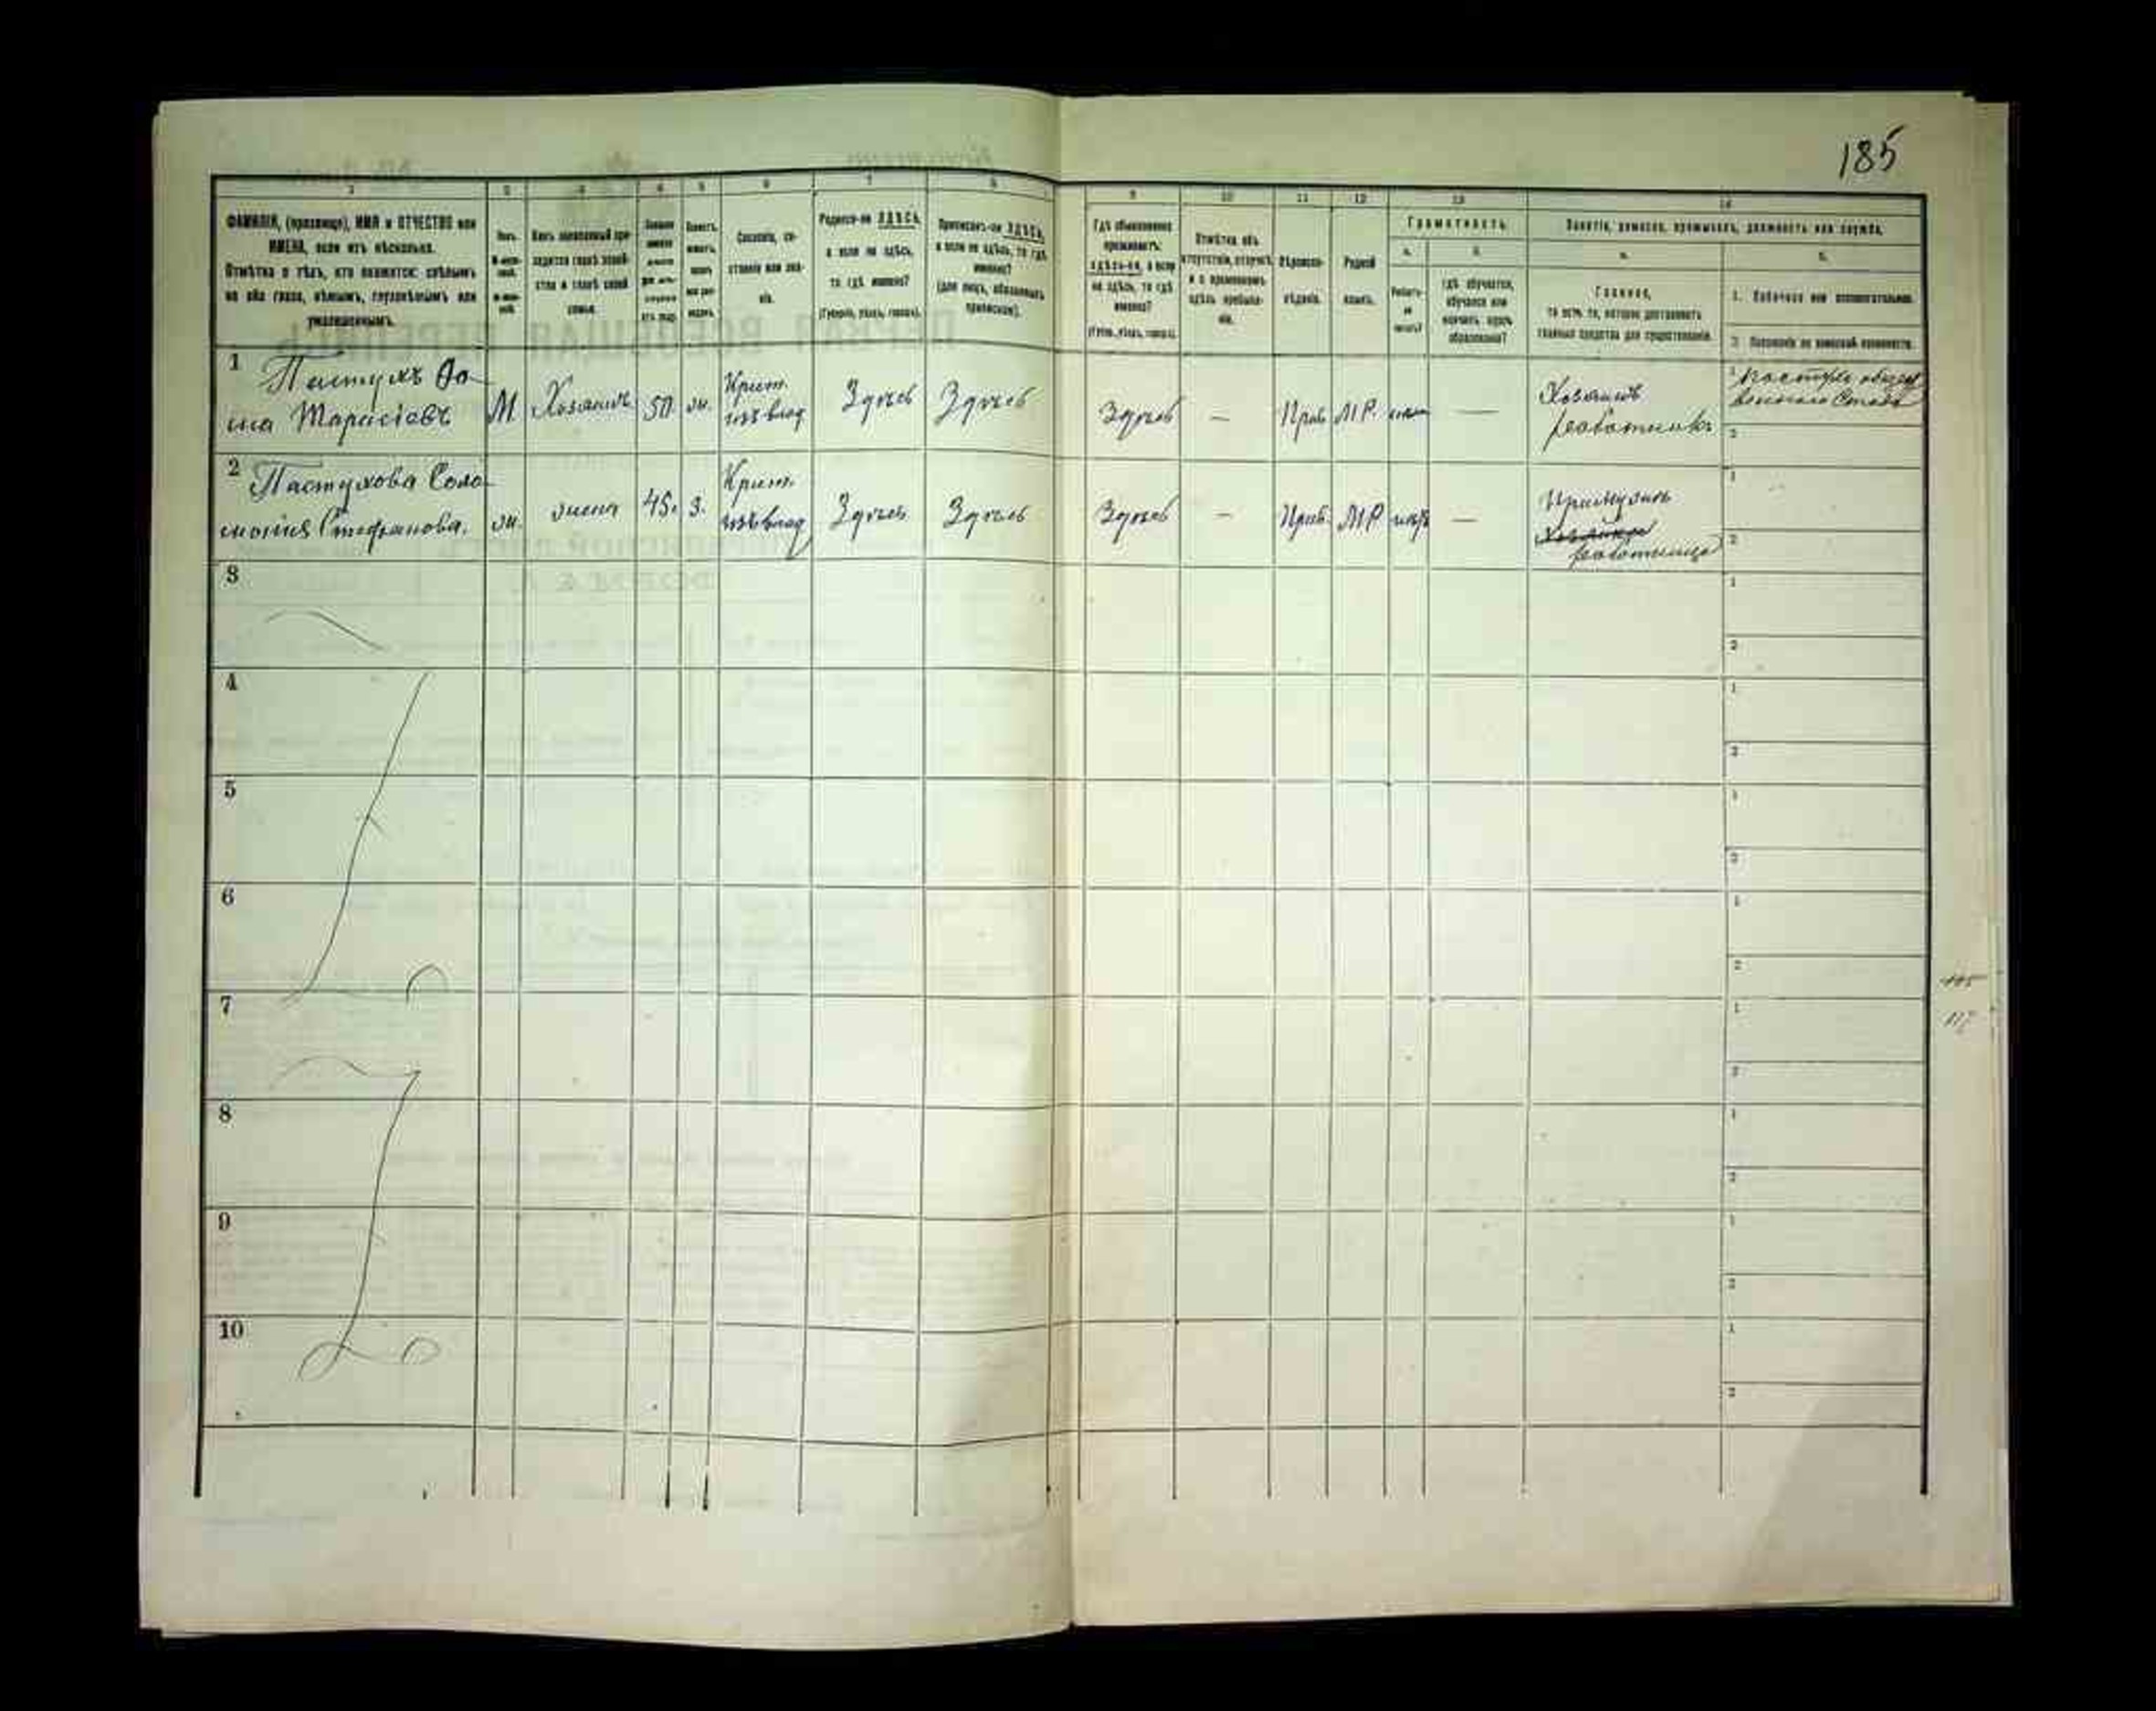 185
1 2 3 4 5 6 7 8 9 10 11 12 13 14
ФАМИЛІЯ, (прозвище), ИМЯ и ОТЧЕСТВО или
ИМЕНА, если ихъ нѣсколько.
Отмѣтка о тѣхъ, кто окажется: слѣпымъ
на оба глаза, нѣмымъ, глухонѣмымъ или
умалишеннымъ.
Полъ.
Сословіе, со-
стояніе или зва-
ніе.
Родился-ли ЗДѢСЬ,
а если не здѣсь,
то гдѣ именно?
(Губернія, уѣздъ, городъ).
Приписанъ-ли ЗДѢСЬ,
а если не здѣсь, то гдѣ
именно?
(для лицъ, обязанныхъ
припискою).
Гдѣ обыкновенно
проживаетъ:
здѣсь-ли, а если
не здѣсь, то гдѣ
именно?
(Губ., уѣздъ, городъ).
Отмѣтка объ
отсутствіи, отлучкѣ
и о временномъ
здѣсь пребыва-
ніи.
Вѣроиспо-
вѣданіе.
Родной
языкъ.
Грамотность.
а. б.
Умѣетъ-
ли
читать?
гдѣ обучается,
обучался или
кончилъ курсъ
образованія?
Занятіе, ремесло, промыселъ, должность или служба.
а. б.
Главное,
то есть то, которое доставляетъ
главныя средства для существованія.
1. Побочное или вспомогательное.
2. Положеніе по воинской повинности.
1 Пастухъ Фо-
ма Тарасіевъ М Хозяинъ 50 ж. Крест. изъ влад Здѣсь Здѣсь Здѣсь — Прав М.Р. — Хозяинъ
работникъ
1 Пастухъ общест
веннаго Стада
2
2 Пастухова Соло-
монія Стефанова. ж. жена 45. З. Крест. изъ влад Здѣсь Здѣсь Здѣсь — Прав. М.Р. — При мужѣ
Хозяйка
работница
1
2
3
4
5
6
7
8
9
10